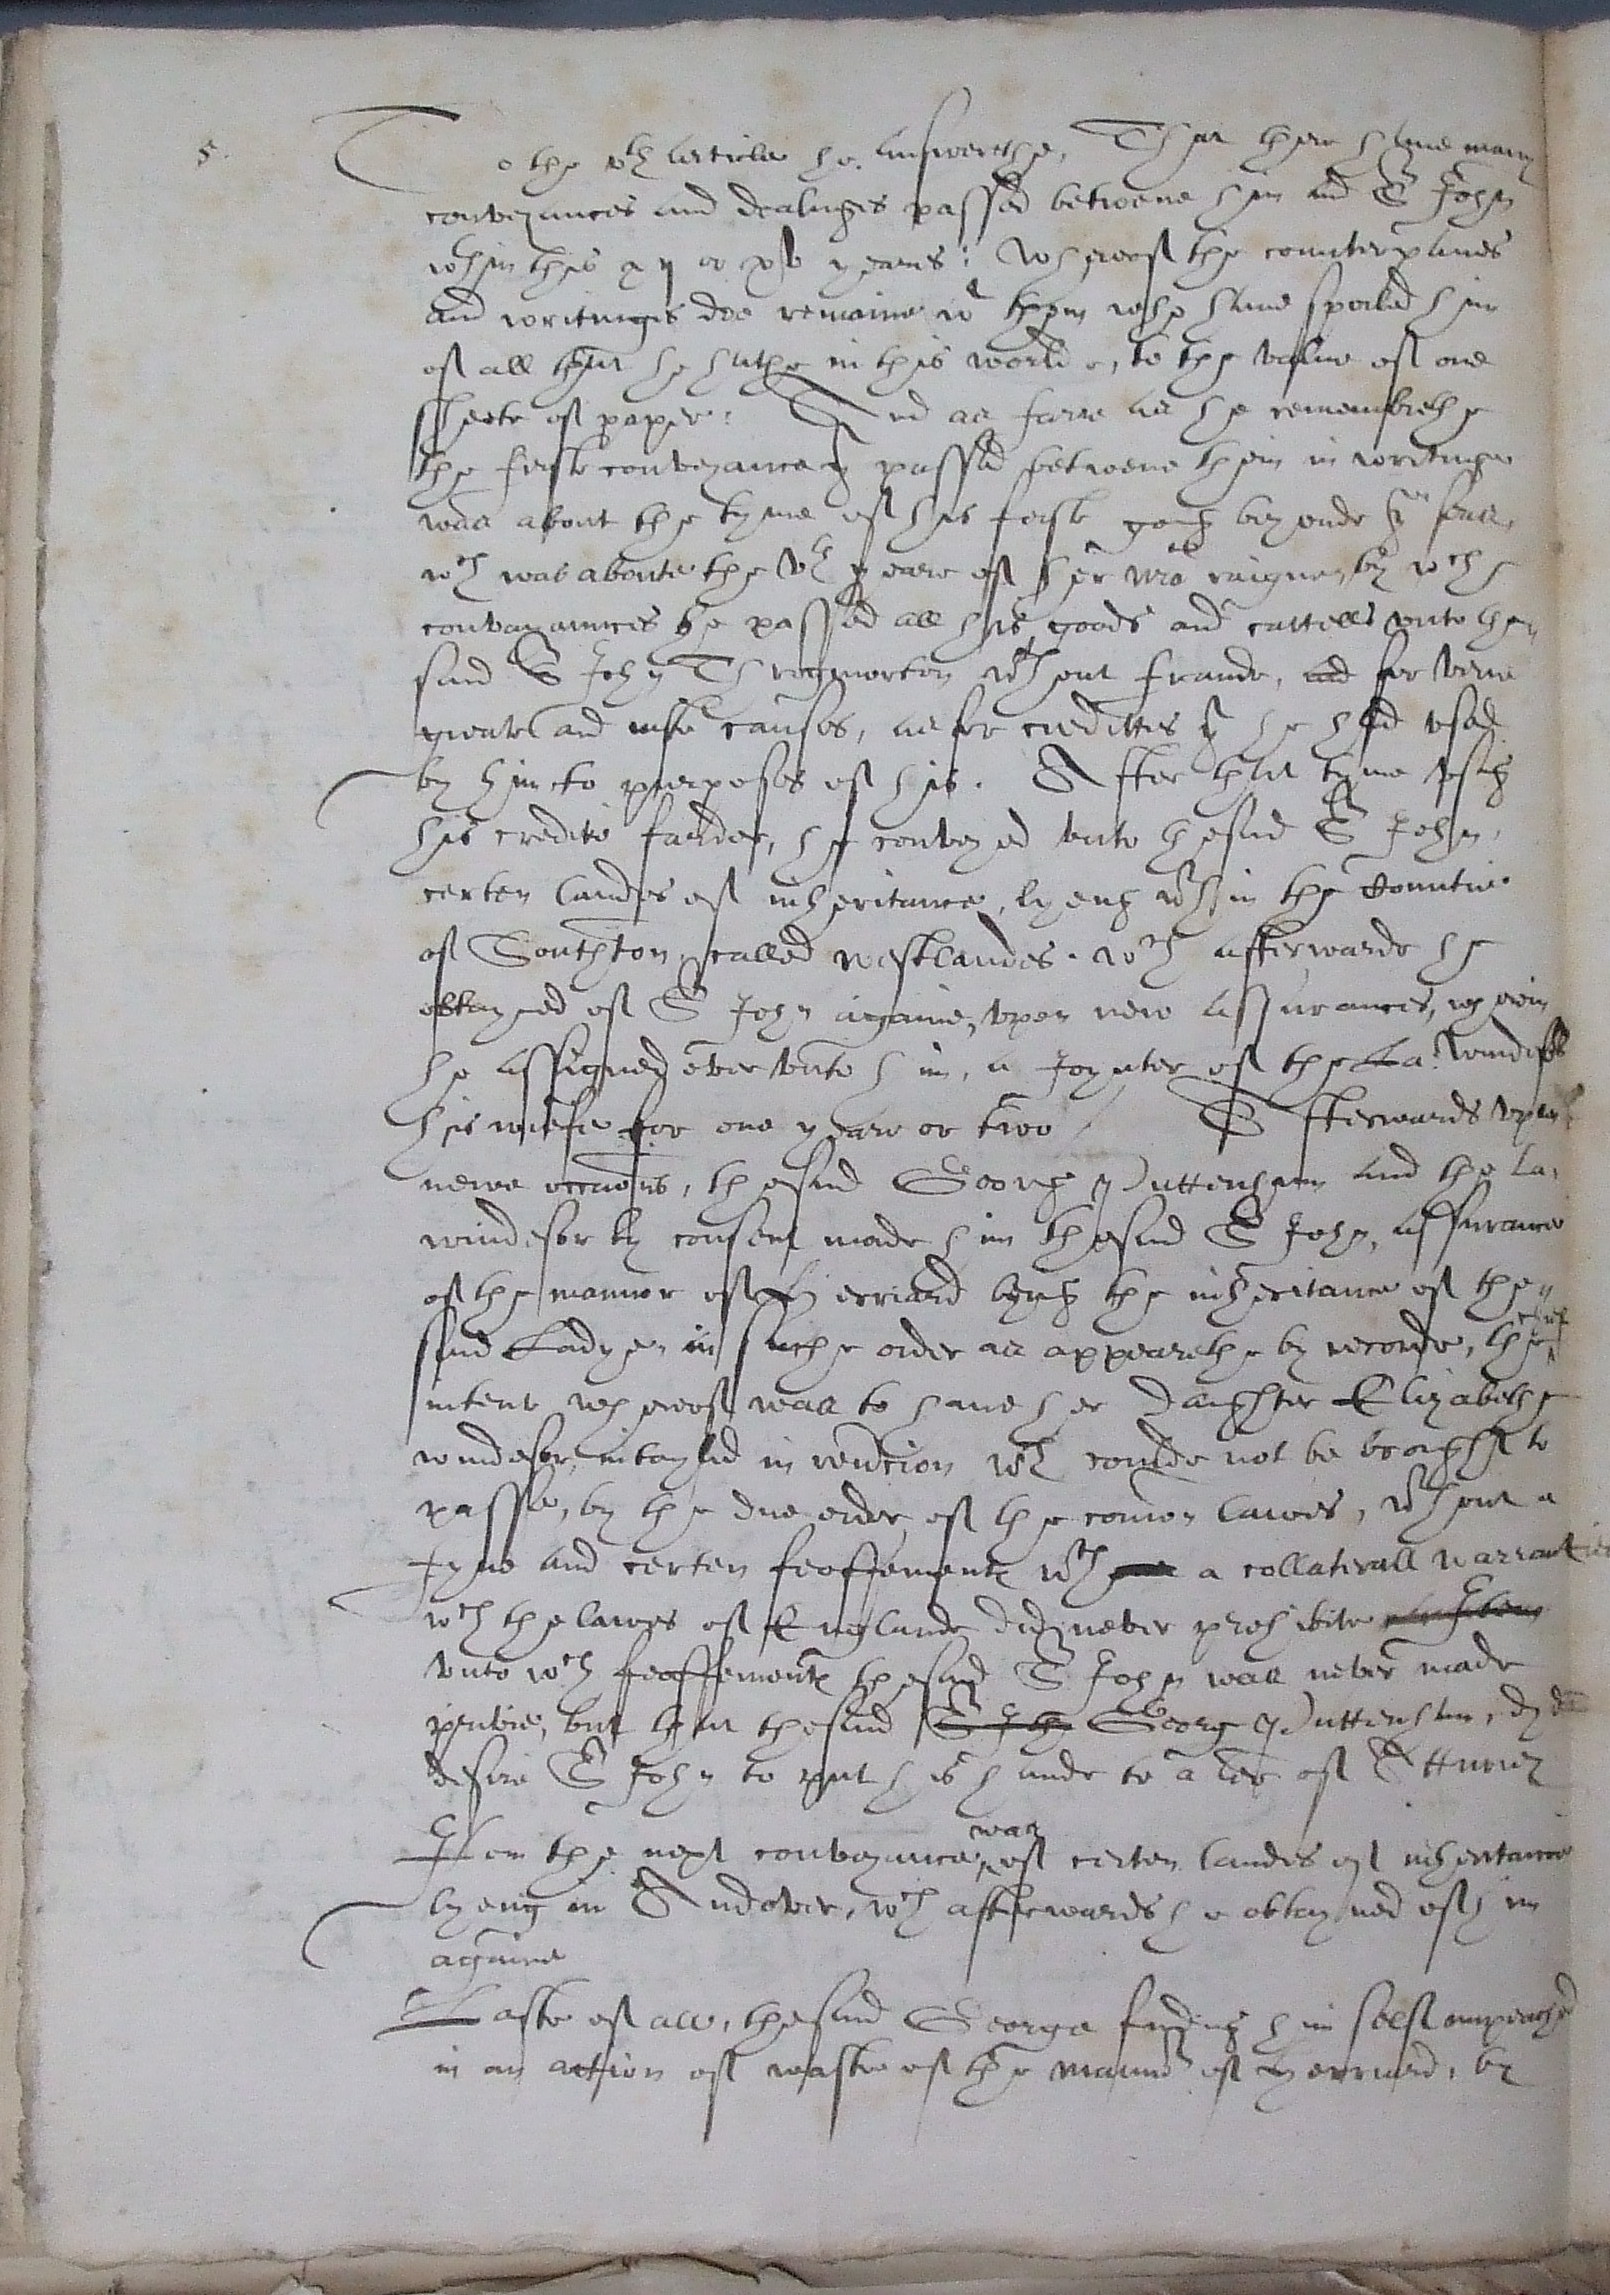 5. To the vth article he answerethe, That there haue many
conveyances and dealinges passed betwene him and Sr John
wthin this xij or xv yeares: Whereof the counterpanes
and writinges doe remaine wt them who haue spoiled him
of all that he hathe in this world e, to the value of one
sheete of paper: And as farre as he remembrethe
the first conveyance yt passed betwene them in writinge
was about the tyme of his first goeng beyonde ye seas,
wch was aboute the vth yeare of her mats raigne, by wche
conveyaunces he passed all his goods and cattells vnto the
said Sr John Throgmorton wthout fraude, and for verie
greate and iuste causes, as for credittes yt he had vsed
by him to purposes of his. After that tyme vsing
his credite farder, he conveyed vnto thesaid Sr John,
certen landes of inheritance, lyeng wthin the Countie
of Southton, called westlandes. wch afterwarde he
obtayned of Sr John againe, vpon new assurances, wherein
he assigned over vnto him, a Joynter of the La: Windesor
his wiefe for one yeare or two / Afterwards vpon
newe occasions, thesaid George Puttenham and the La:
windesor by consent made him thesaid Sr John, assurance
of the mannor of Herriard being the inheritance of the
said Ladye, in suche order as appearethe by recorde, the chief
intent whereof was to haue her daughter Elizabethe
windesor, intayled in reu̅cion wch coulde not be brought to
passe, by the due order of the com̅on lawes, wthout a
fyne and certen feoffementes wth a collaterall warrantie
wch the lawes of Englande did never prohibite
vnto wch feoffementes thesaid Sr John was never made
privie, but that thesaid Sr John Georg Puttenham, dyd
desire Sr John to put his hande to a lre of Atturney
Item the next conveyance was of certen landes of inheritance
lyeng in Andover, wch afterwards he obtayned of him
againe
Laste of all, thesaid George finding him self impeached
in an action of waste of the mannor of Herriard, by